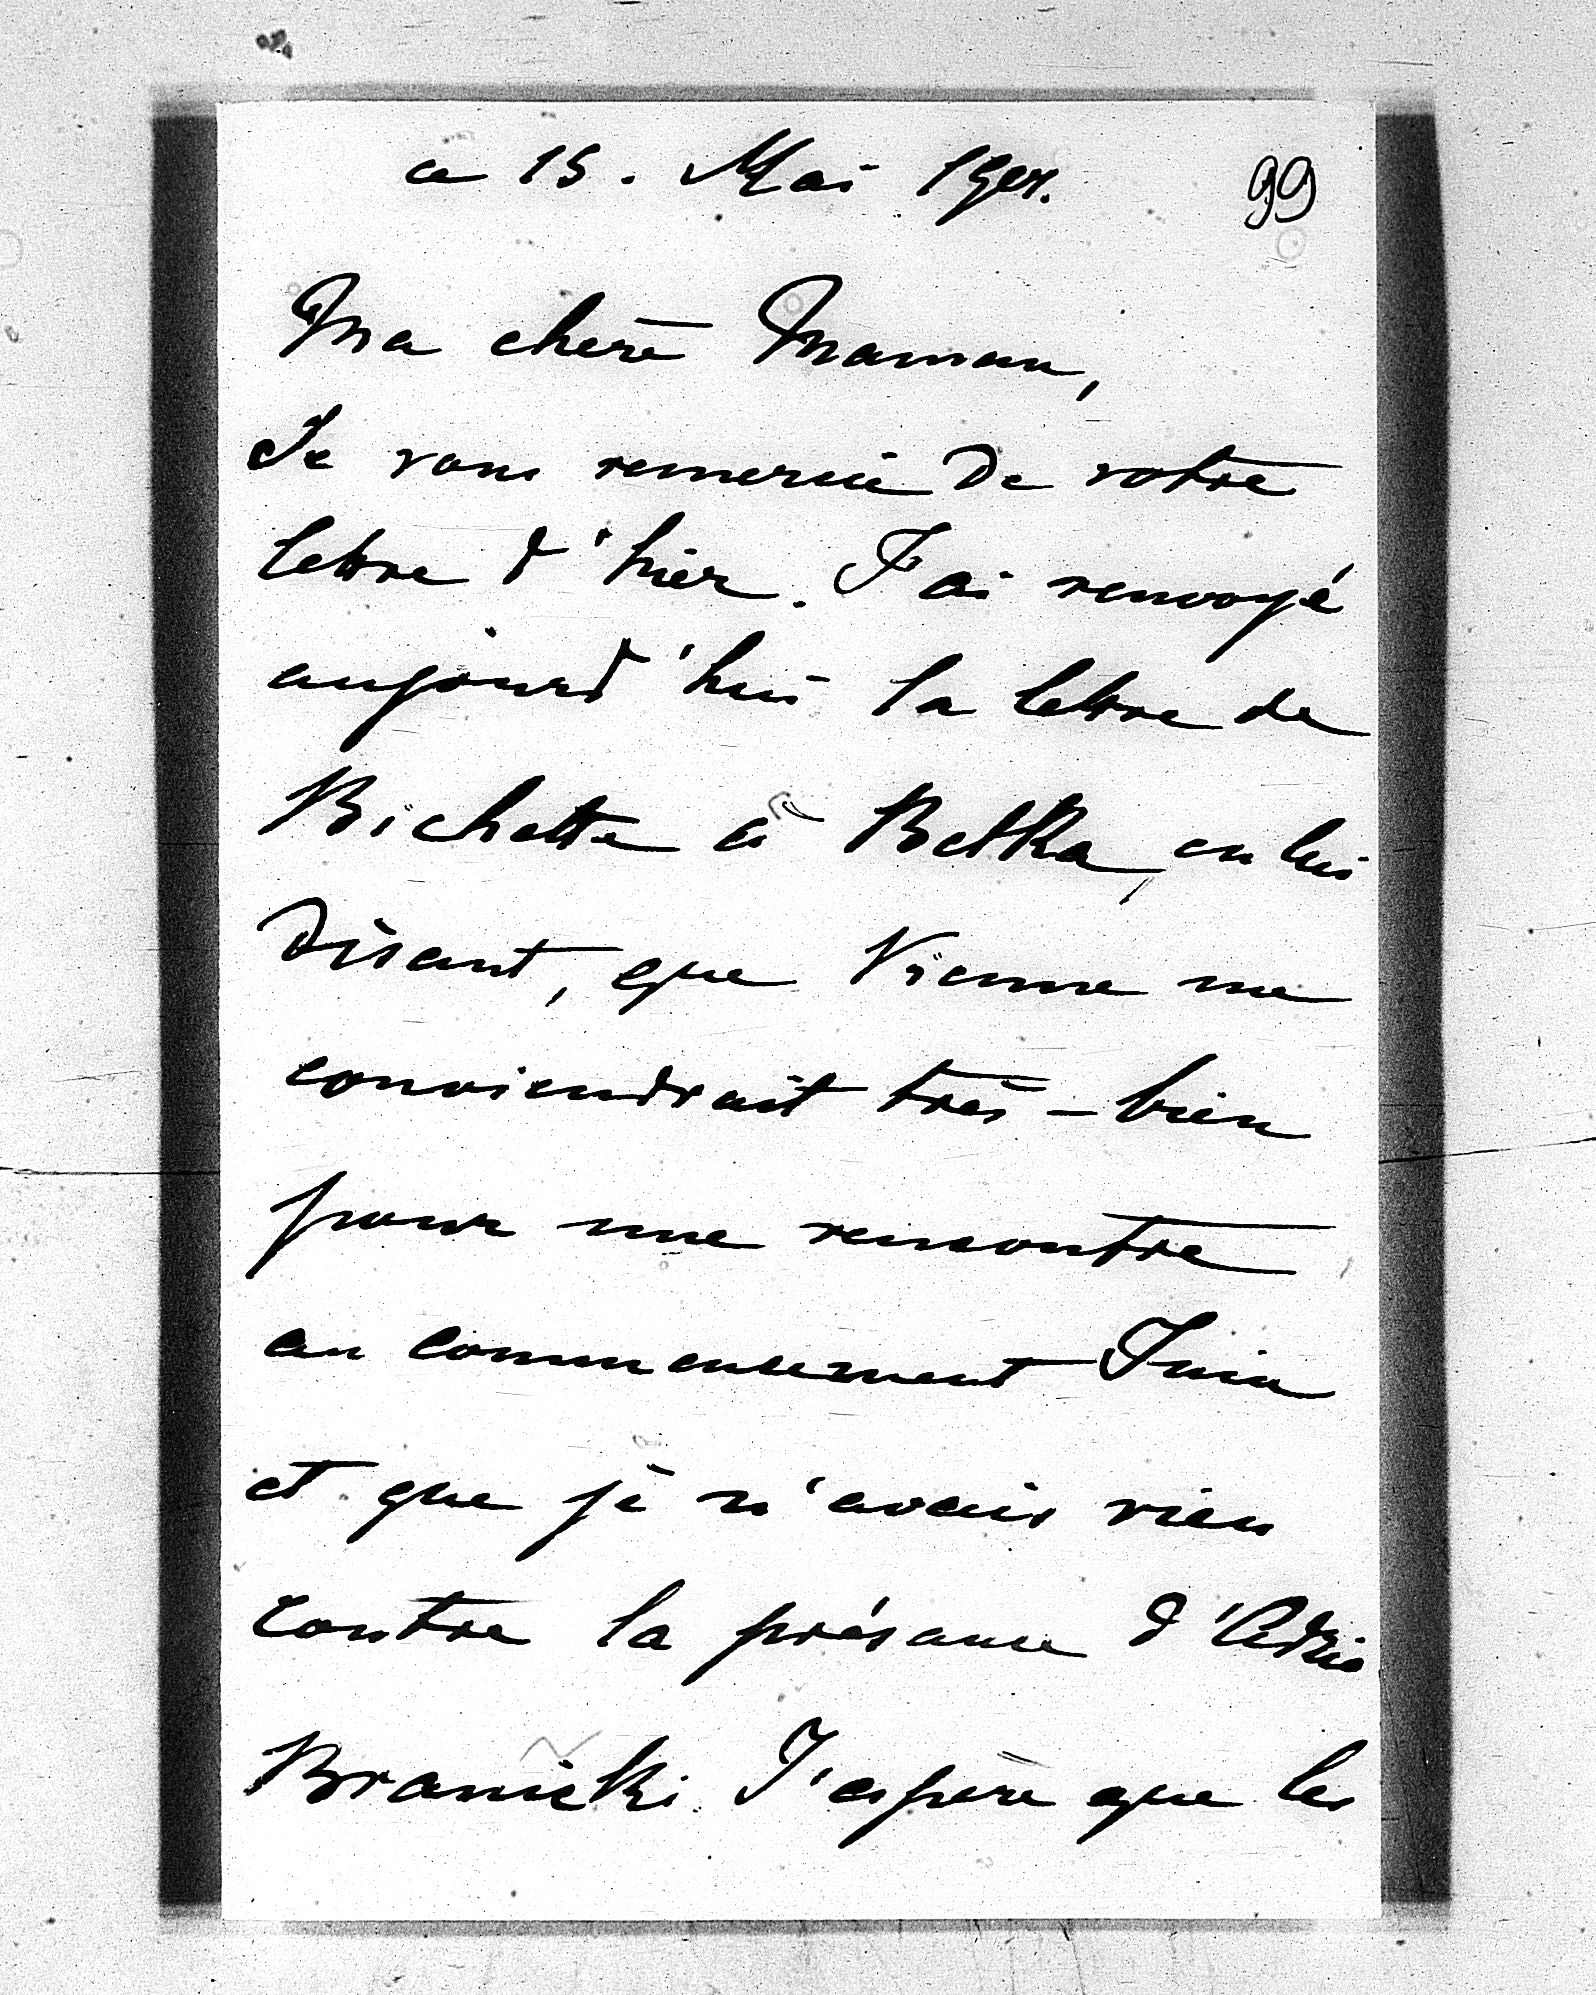 ce 15. Mai 1901.
99
Ma chère Maman,
Je vous remercie de votre
lettre d'hier. J'ai renvoyé
aujourd'hui la lettre de
Bichette à Betka, en lui
disant, que Vienne me
conviendrait très-bien
pour une rencontre
au commencement Juin
et que je n'avais rien
contre la présance d'Adzio
Branicki J'espère que les